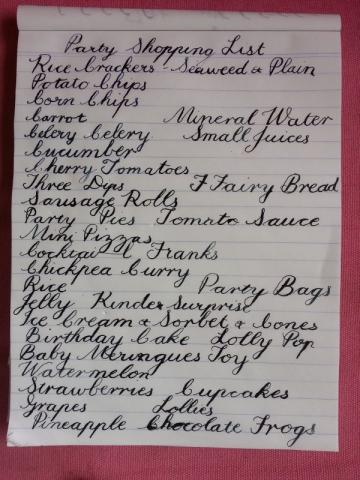 Party Shopping List
Rice Crackers - Seaweed & Plain
Potato Chips
Corn Chips
Carrot Mineral Water
Celery Celery Small Juices
Cucumber
Cherry Tomatoes
Three Dips F Fairy Bread
Sausage Rolls
Party Pies Tomato Sauce
Mini Pizzas
Cocktail Franks
Chickpea Curry
Rice Party Bags
Jelly Kinder Surprise
Ice Cream & Sorbet & Cones
Birthday Cake Lolly Pop
Baby Meringues Toy
Watermelon
Strawberries Cupcakes
Grapes Lollies
Pineapple Chocolate Frogs